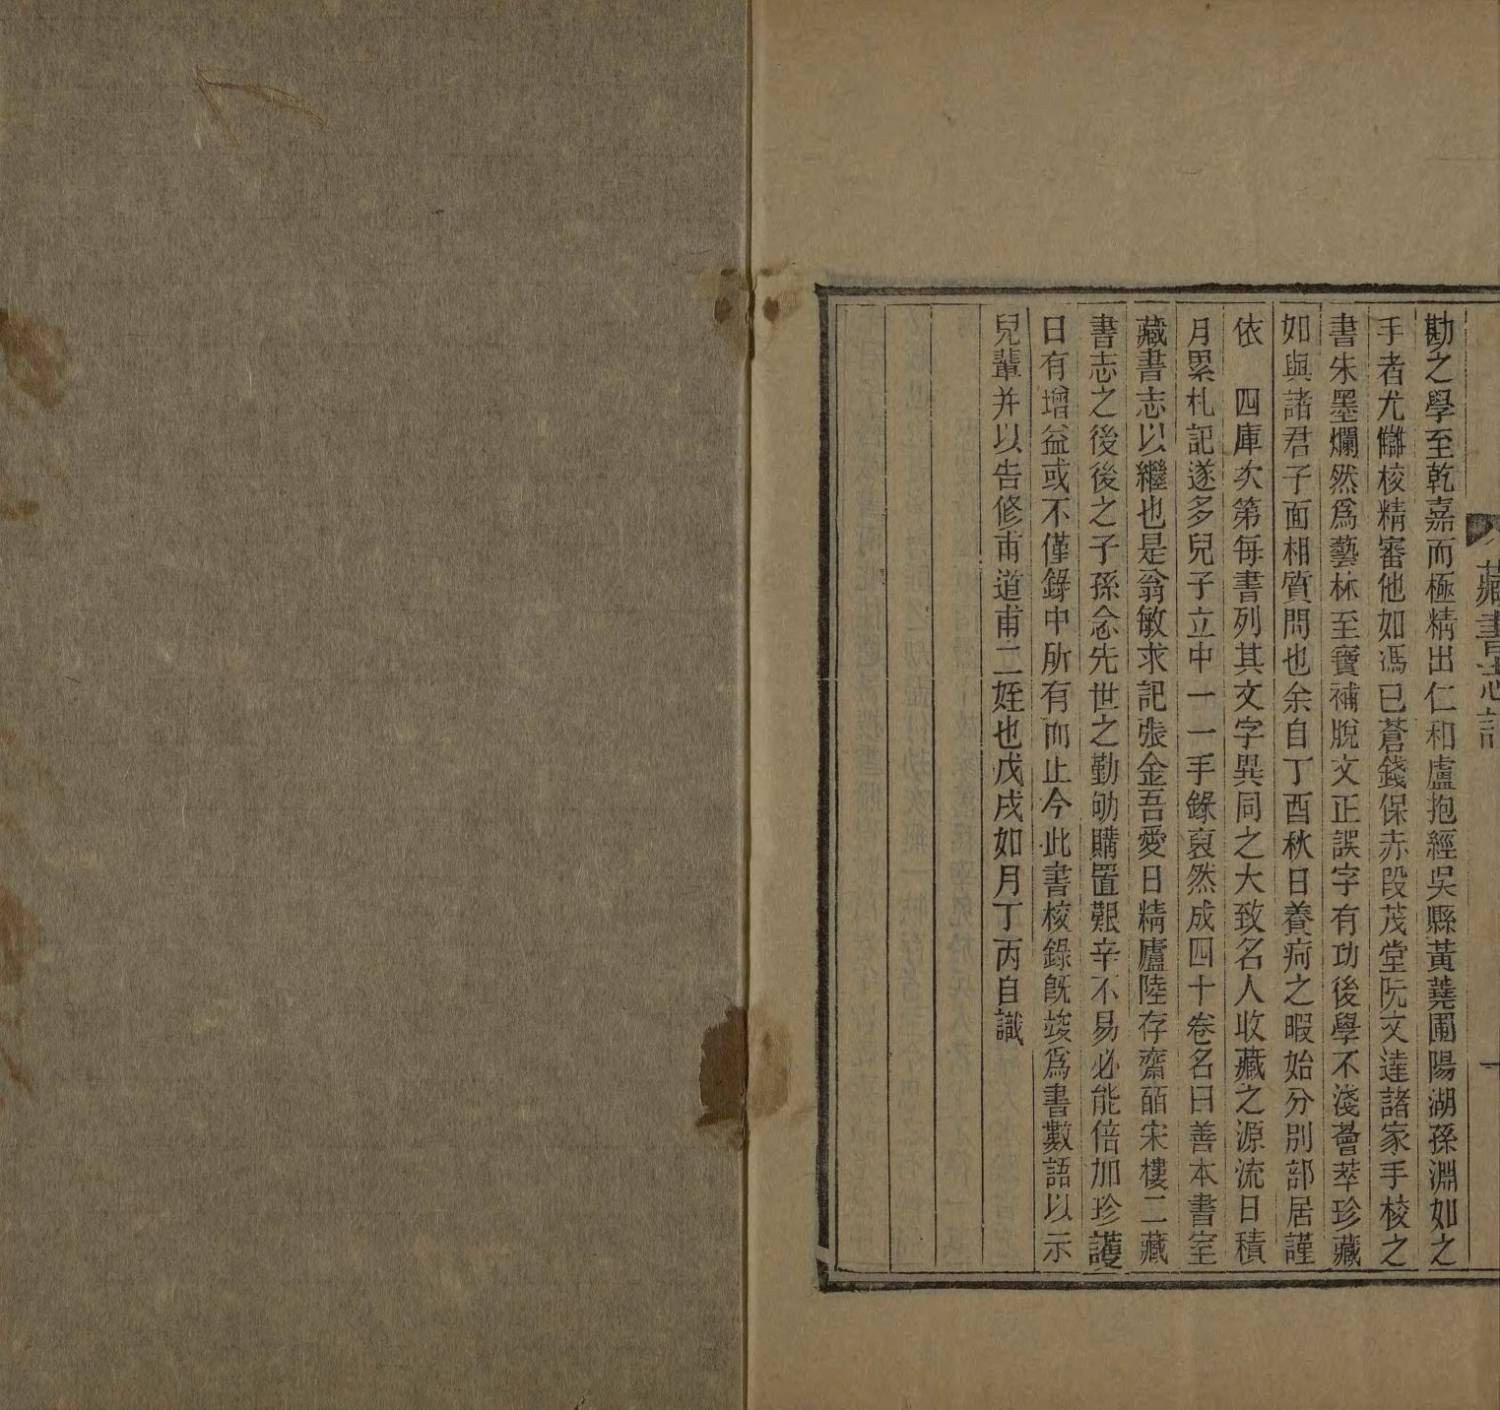 藏書志記
勘之學至乾嘉而極精出仁和盧抱經吳縣黃蕘圃陽湖孫淵如之
手者尤讎校精審他如馮已蒼錢保赤段茂堂阮文達諸家手校之
書朱墨爛然爲藝林至寶補脫文正誤字有功後學不淺薈萃珍藏
如與諸君子面相質問也余自丁酉秋日養疴之暇始分別部居謹
依　四庫次第每書列其文字異同之大致名人收藏之源流日積
月累札記遂多兒子立中一一手錄裒然成四十卷名曰善本書室
藏書志以繼也是翁敏求記張金吾愛日精廬陸存齋皕宋樓二藏
書志之後後之子孫念先世之勤劬購置艱辛不易必能倍加珍護
日有增益或不僅錄中所有而止今此書校錄旣竣爲書數語以示
兒輩并以告修甫道甫二姪也戊戌如月丁丙自識